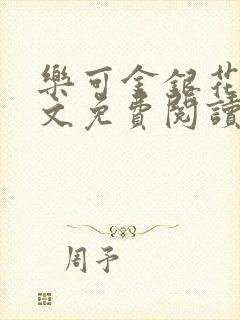 樂可金銀花
文免費閱讀
周予